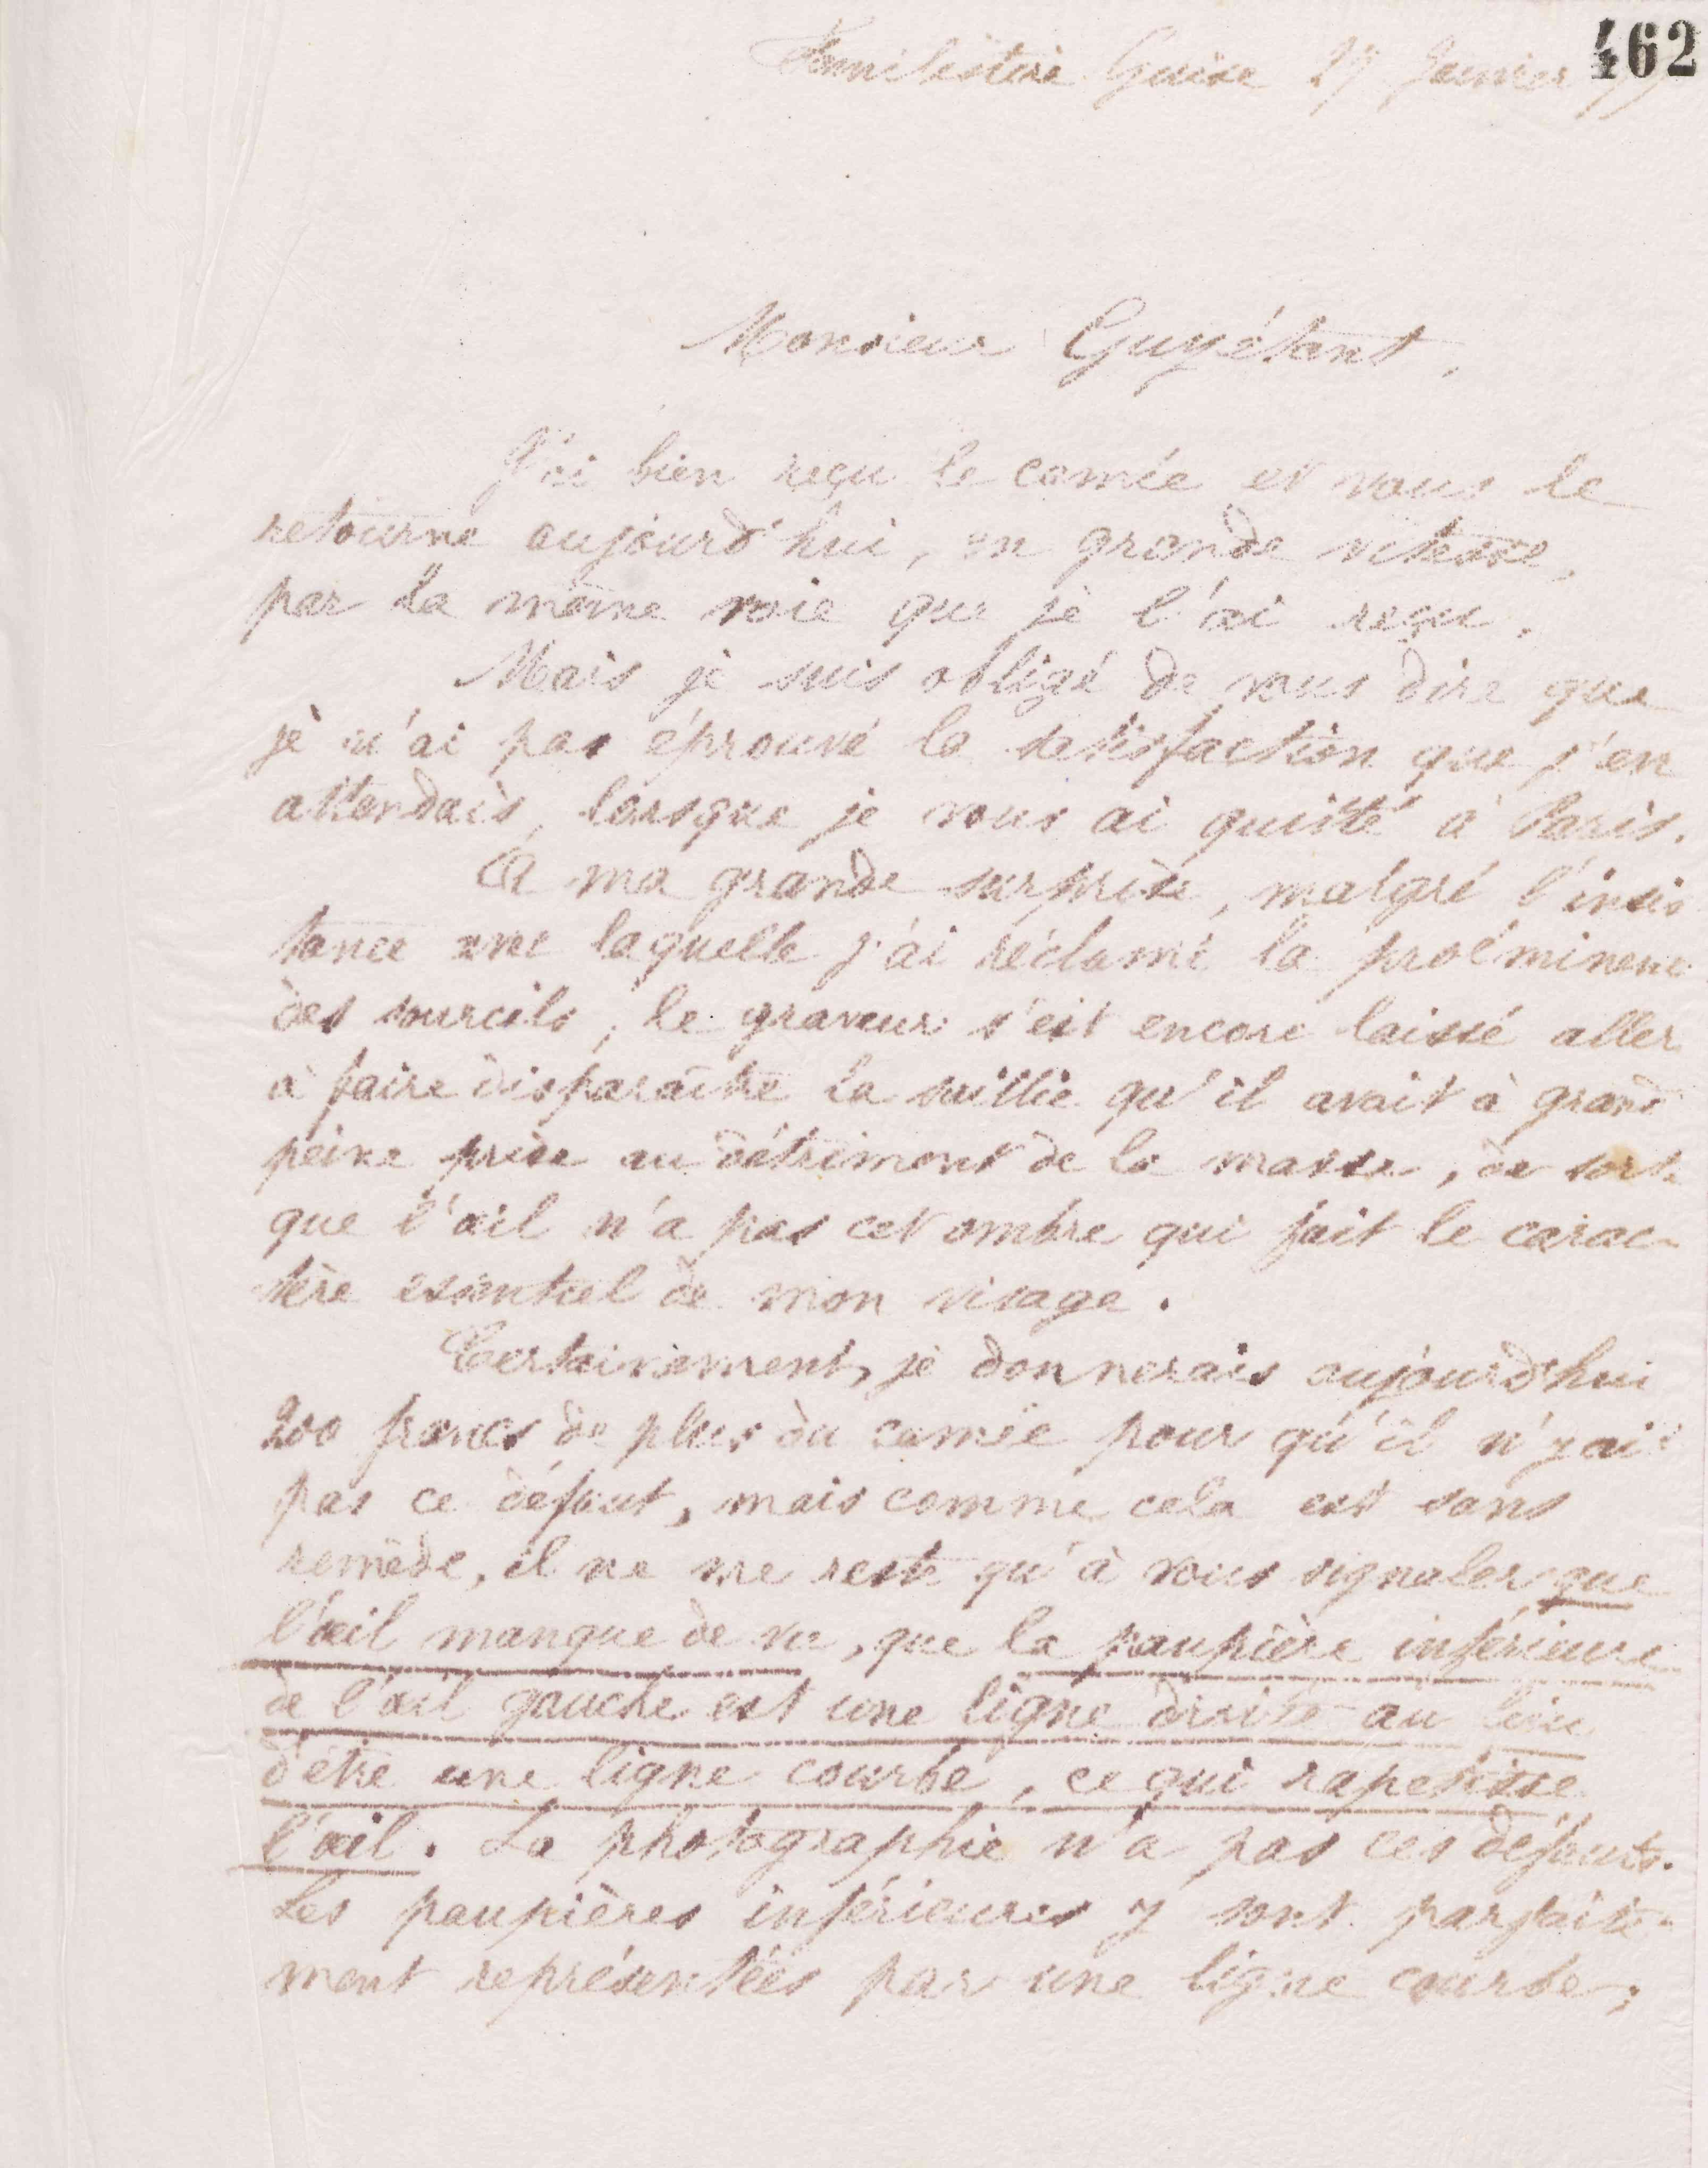 462
Familistère Guise 27 Janvier
Monsieur Guyétant,
J'ai bien reçu le camée et vous le
retourne aujourd'hui, en grande vitesse,
par la même voie que je l'ai reçu.
Mais je suis obligé de vous dire que
je n'ai pas éprouvé la satisfaction que j'en
attendais, lorsque je vous ai quitté à Paris.
A ma grande surprise, malgré l'insis
tance avec laquelle j'ai réclamé la proéminence
des sourcils, le graveur s'est encore laissé aller
à faire disparaître la saillie qu'il avait à grand
peine prise au détriment de la masse, de sorte
que l'œil n'a pas cet ombre qui fait le carac-
tère essentiel de mon visage.
Certainement, je donnerais aujourd'hui
200 francs de plus du camée pour qu'il n'y ait
pas ce défaut, mais comme cela est sans
remède, il ne me reste qu'à vous signaler que
l'œil manque de vie, que la paupière inférieure
de l'œil gauche est une ligne droite au lieu
d'être une ligne courbe, ce qui rapetisse
l'œil. La photographie n'a pas ces défauts.
Les paupières inférieures y sont parfaite-
ment représentées par une ligne courbe;